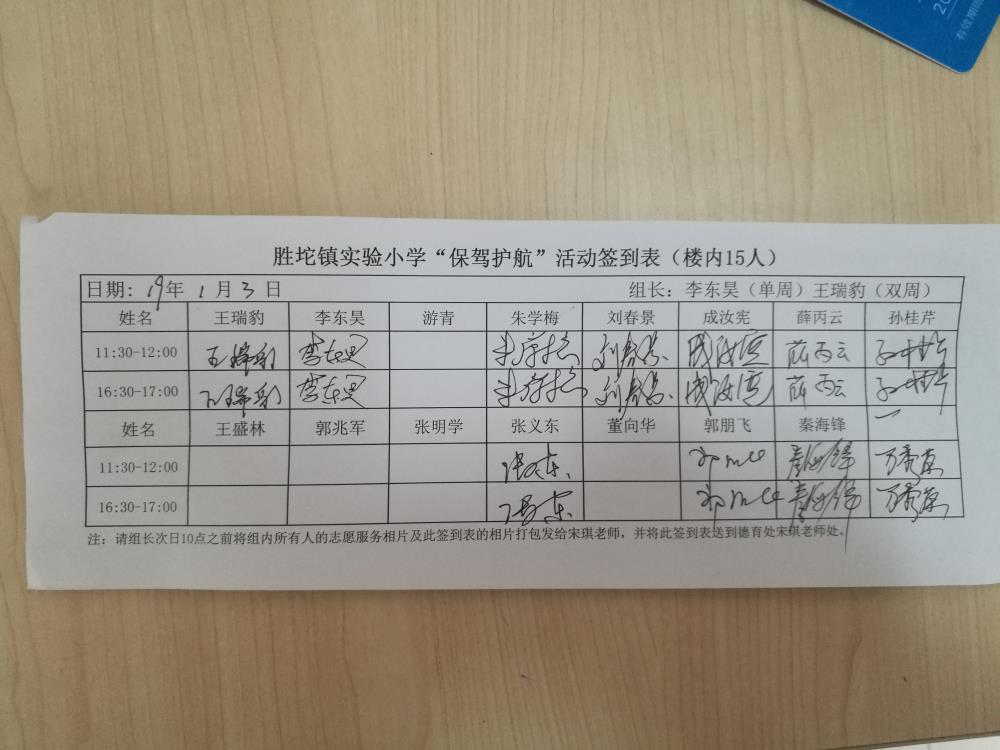 胜坨镇实验小学“保驾护航”活动签到表（楼内15人）
日期: 19年 1月 3日 组长: 李东昊（单周）王瑞豹（双周）
姓名 王瑞豹 李东昊 游青 朱学梅 刘春景 成汝宪 薛丙云 孙桂芹
11:30-12:00 王瑞豹 李东昊 朱学梅 刘春景 成汝宪 薛丙云 孙桂芹
16:30-17:00 王瑞豹 李东昊 朱学梅 刘春景 成汝宪 薛丙云 孙桂芹
姓名 王盛林 郭兆军 张明学 张义东 董向华 郭朋飞 秦海锋
11:30-12:00 张义东 秦海锋
16:30-17:00 秦海锋
注: 请组长次日10点之前将组内所有人的志愿服务相片及此签到表的相片打包发给宋琪老师，并将此签到表送到德育处宋琪老师处。
20
有效期限